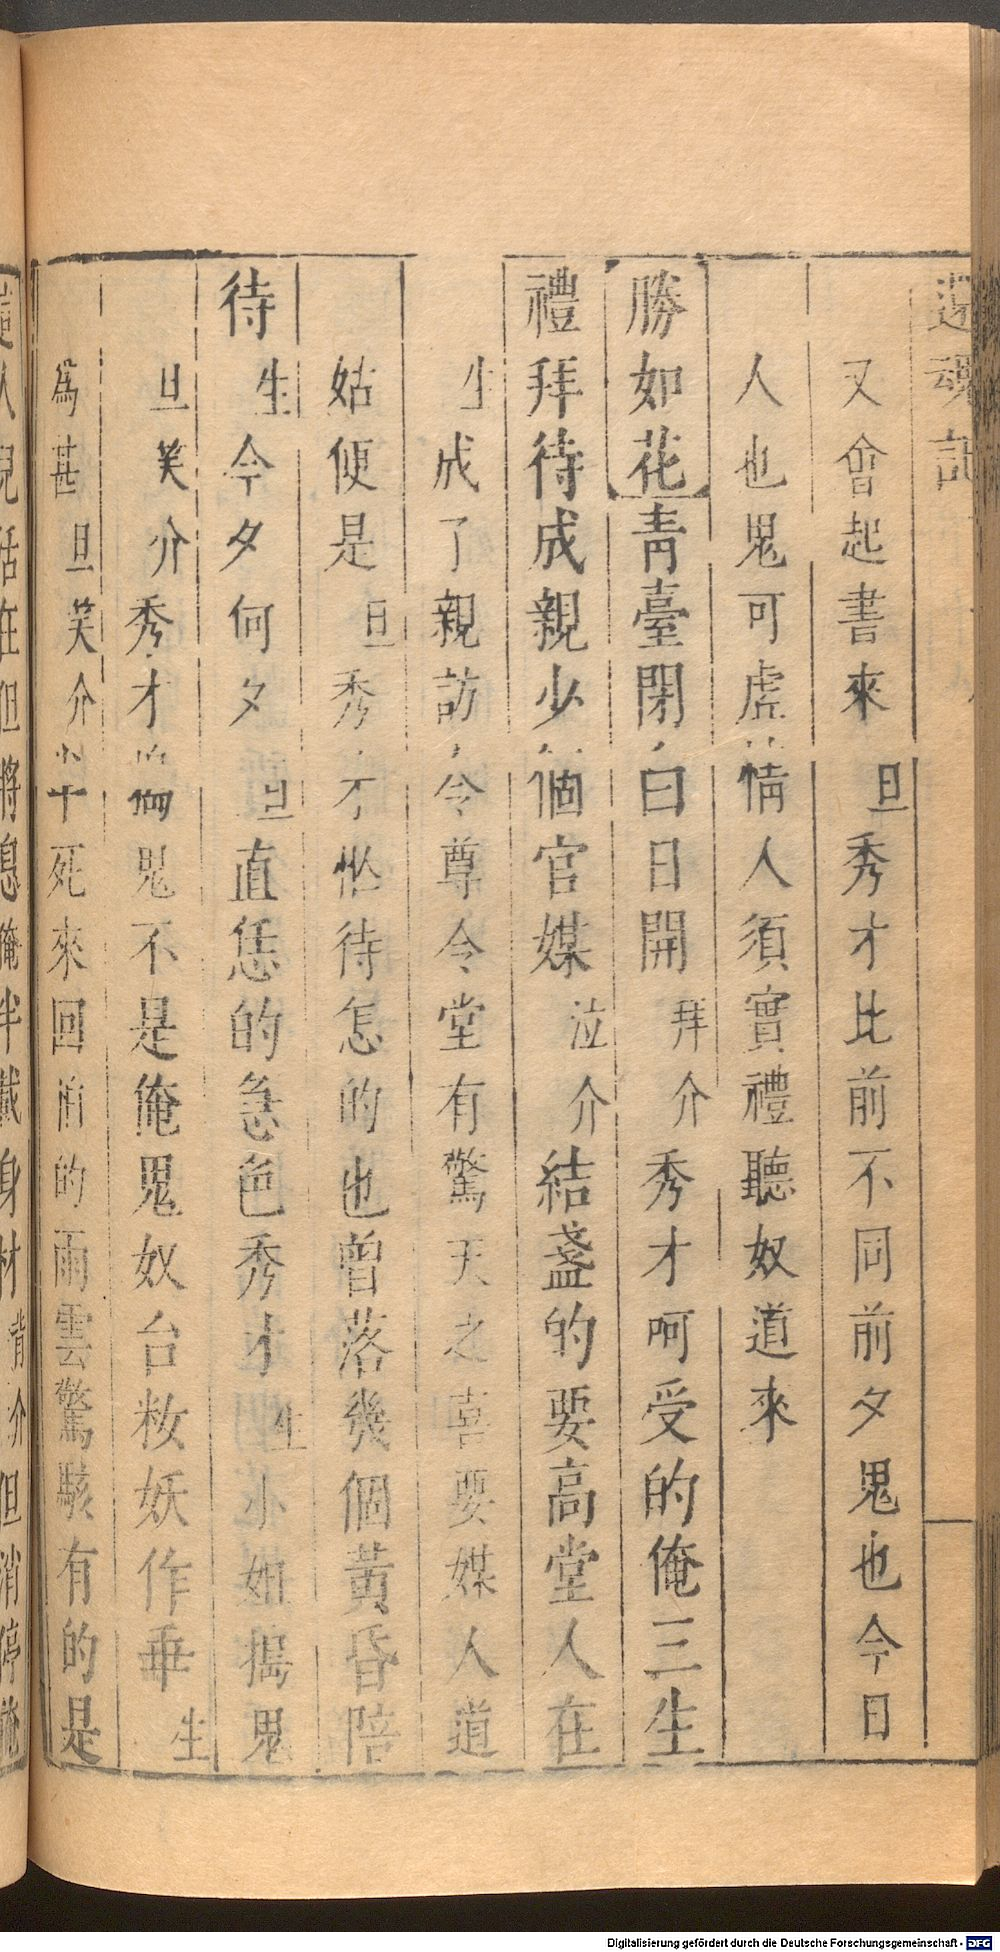 還魂記
又會起書來旦秀才比前不同前夕鬼也今日
人也鬼可虛情人須實禮聽奴道來
勝如花青臺閉白日開拜介秀才呵受的俺三生
禮拜待成親少個官媒泣介結盞的要高堂人在
生成了親訪令尊令堂有驚天之喜要媒人道
姑便是旦秀才忙待怎的也曾落幾個黃昏陪
待生今夕何夕旦直恁的急色秀才生小姐搗鬼
旦笑介秀才你搗鬼不是俺鬼奴台妝妖作乖生
為甚旦笑介半死來回怕的雨雲驚駭有的是
這人兒活在但將息俺半載身材背介但消停俺
Digitalisierung gefördert durch die Deutsche Forschungsgemeinschaft - DFG